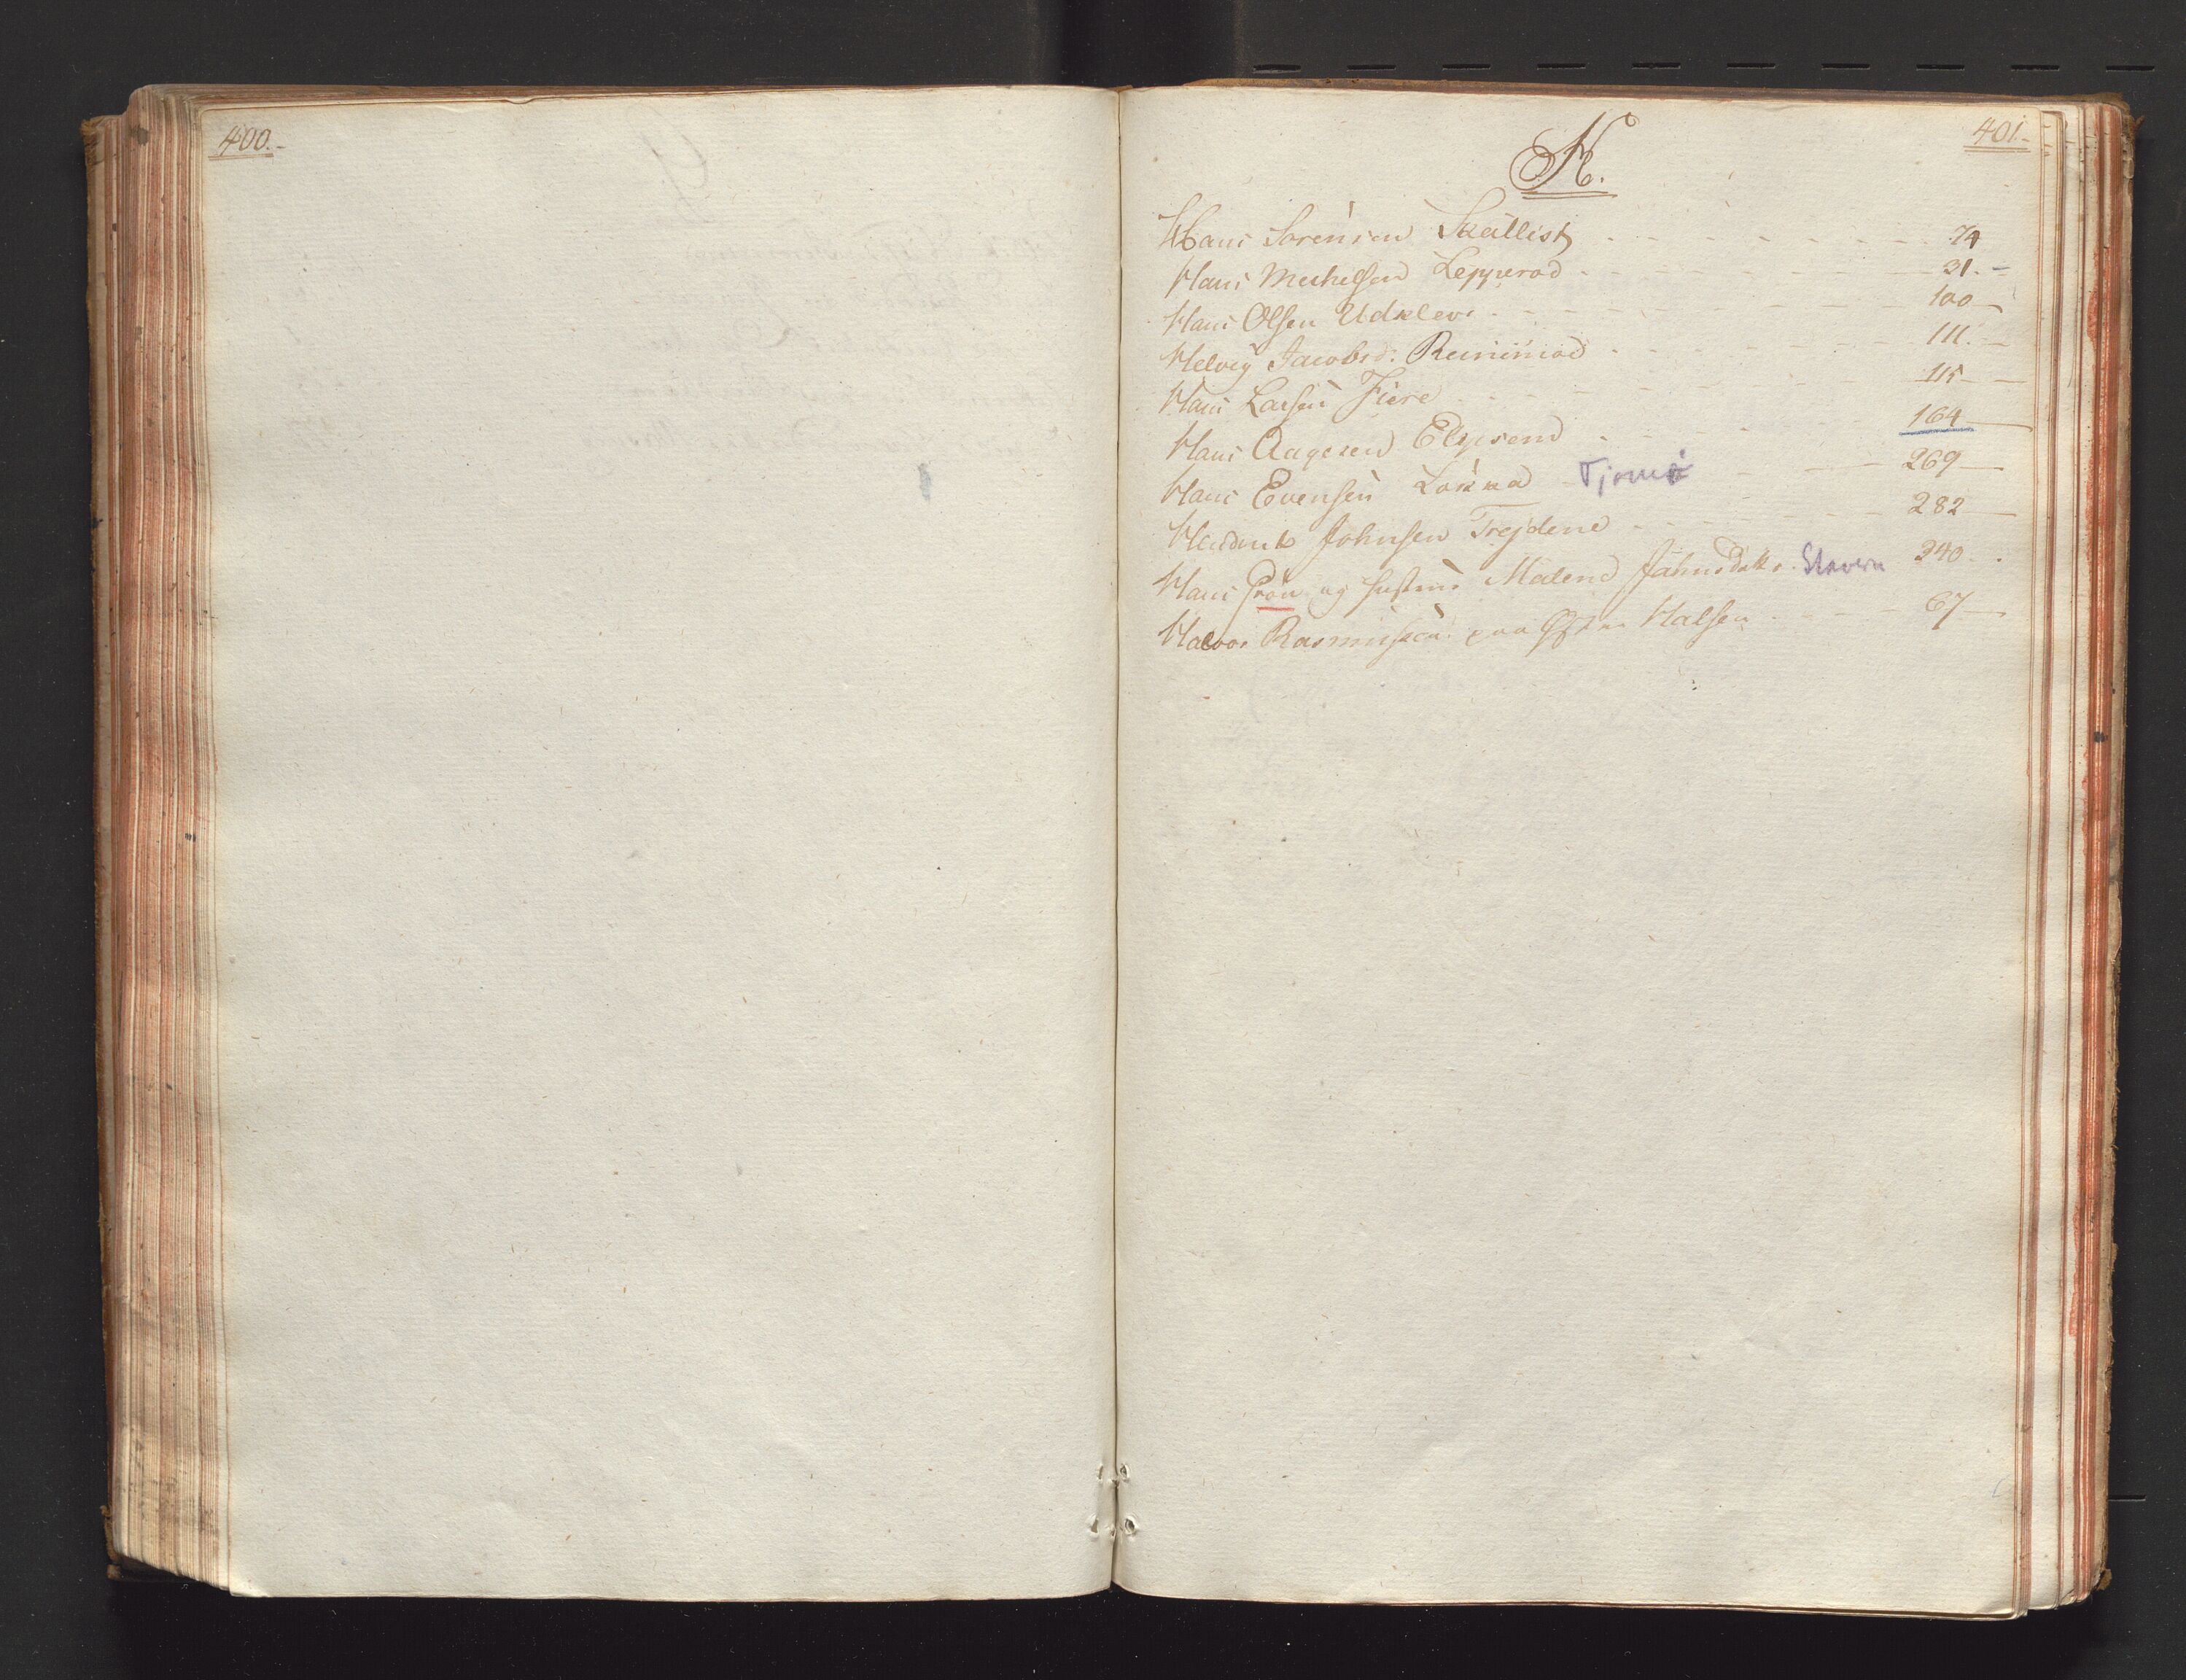 400.-
401.-
H.
Hans Sørensen Skállist - - - - - 74
Hans Mechelsen Lepperød - - - - - 31. -
Hans Olsen Udklev - - - - - 100 -
Helvig Jacobsd: - - - - - 111. -
Hans Larsen Fiere - - - - - 115 -
Hans Aagesen - - - - - 164 -
Hans Evensen Løkka Tjømø - - - 269 -
Johnsen Trejdene - - - - - 282 -
Hans Prøn og Hustrue Malene Jahnsdattr. Stavern 240 .
Halvor Rasmussen paa Østre Halsen - - - 67 -